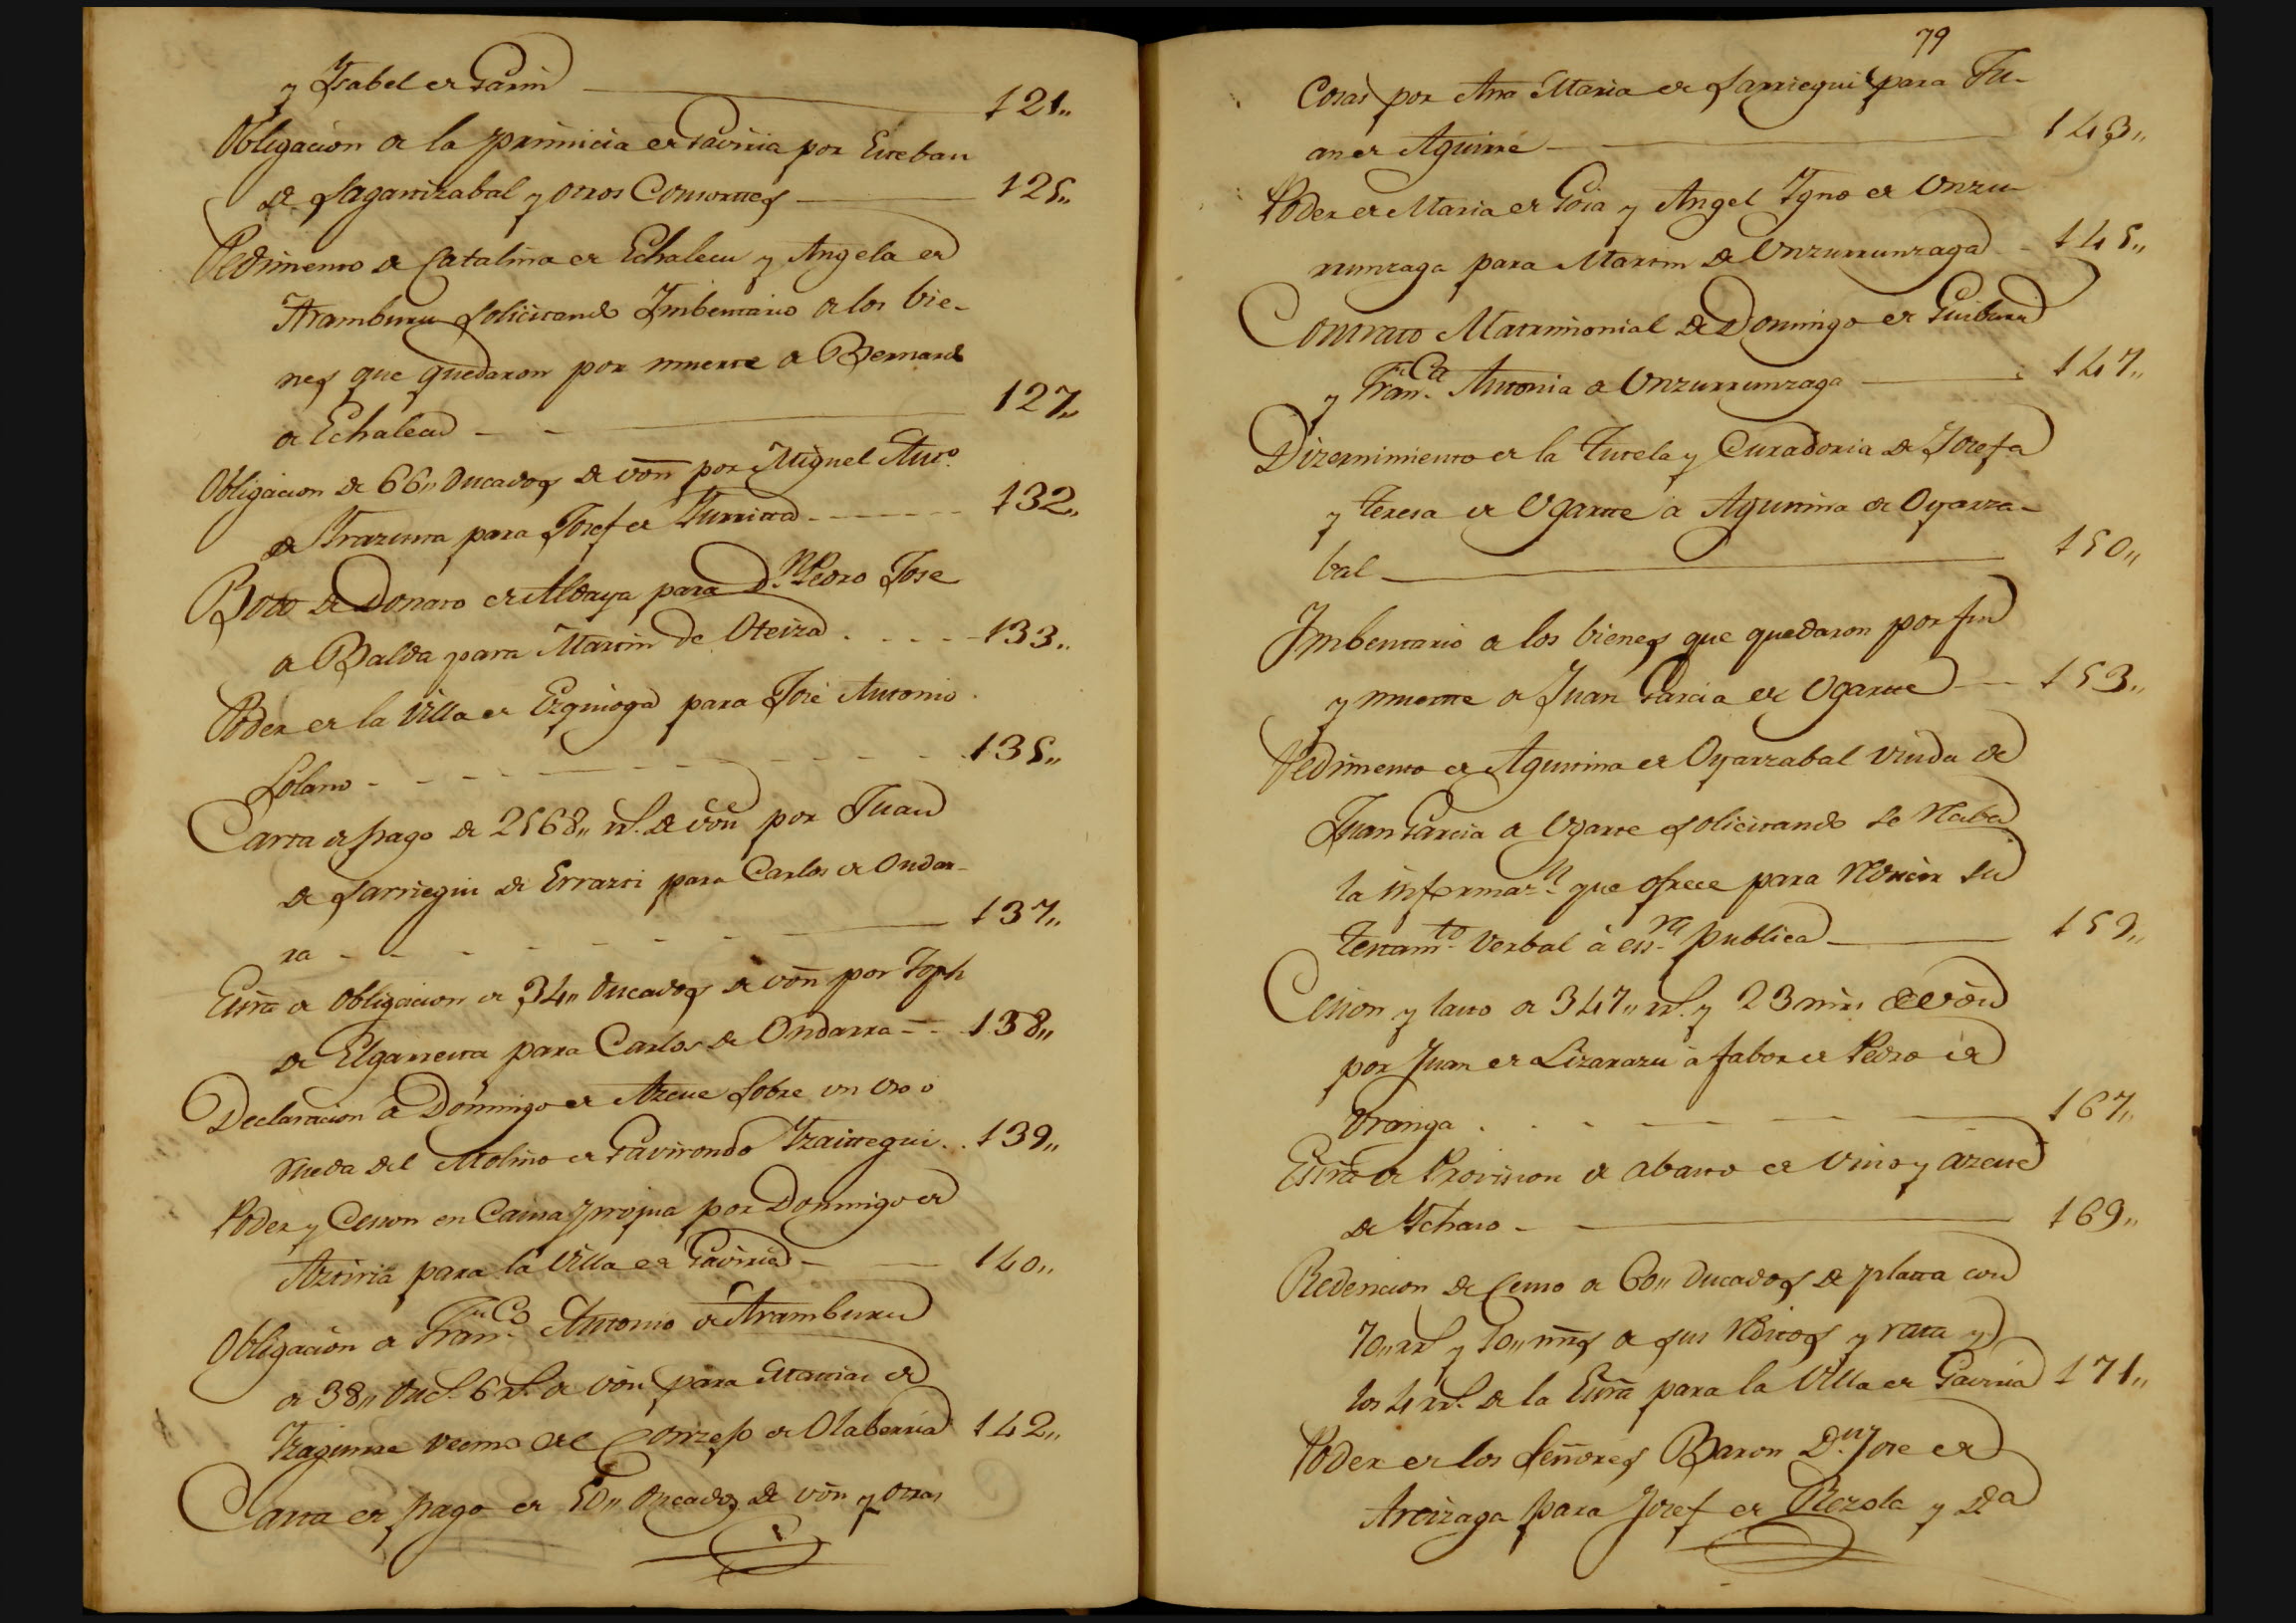 y Ysabel de Garin 121,,
Obligacion de la primicia de Gaviria por Esteban
de Sagastizabal y otros Consortes 125,,
Pedimento de Catalina de Echalecu y Angela de
Aramburu solicitando Imbentario de los bie-
nes que quedaron por muerte de Bernardo
de Echalecu 127,,
Obligacion de 66,, ducados de von por Miguel Anto.
de para Josef de Yurrita 132,,
de Donato de Aldaya para Dn. Pedro Jose
de Balda para Martin de Oteiza 133,,
Poder de la Villa de Ezquioga para José Antonio
Solano 135,,
Carta de pago de 2568,, rs. de von por Juan
de Sarriegui de Errazti para Carlos de Ondar-
ra 137,,
Essra de obligacion de 34,, ducados de von por Joph
de Elgarresta para Carlos de Ondarra 138,,
Declaracion de Domingo de Azcue sobre un uso o
rueda del Molino de Gavirondo Yzaittegui 139,,
Poder y Cesion en Causa propia por Domingo de
Aztiria para la Villa de Gaviria 140,,
Obligacion de Franco. Antonio de Aramburu
de 38,, Ducs. 6 rs. de von para Mattias de
Yzaguirre vecino del Conzejo de Olaberria 142,,
Carta de pago de 50,, Ducados de von y otras
79
Cosas por Ana Maria de Sarriegui para Ju-
an de Aguirre 143,,
Poder de Maria de Goia y Angel Ygno de Unzu-
rrunzaga para Martin de Unzurrunzaga 145,,
Contrato Matrimonial de Domingo de Guiburu
y Franca. Antonia de Unzurrunzaga 147,,
Dizernimiento de la Tutela y Curadoria de Josefa
y Teresa de Ugartte á Agustina de Oyarza-
bal 150,,
Imbentario de los bienes que quedaron por fin
y muerte de Juan Garcia de Ugartte 153,,
Pedimento de Agustina de Oyarzabal viuda de
Juan Garcia de Ugarte solicitando se Reciba
la informazn. que ofrece para Reducir su
Testamto. Verbal á essra. publica 159,,
Cesion y lasto de 347,, rs. y 23 mrs. de von
por Juan de Lizarazu á fabor de Pedro de
Uranga 167,,
Essra de Provision de abasto de Vino y azeite
de Ychaso 169,,
Redencion de Censo de 60,, ducados de platta con
70,, rs. y 10,, mrs de sus Reditos y rata y
los 4 rs. de la Essra para la Villa de Gaviria 171,,
Poder de los Señores Baron Dn. Jose de
Areizaga para Josef de Rezola y Da